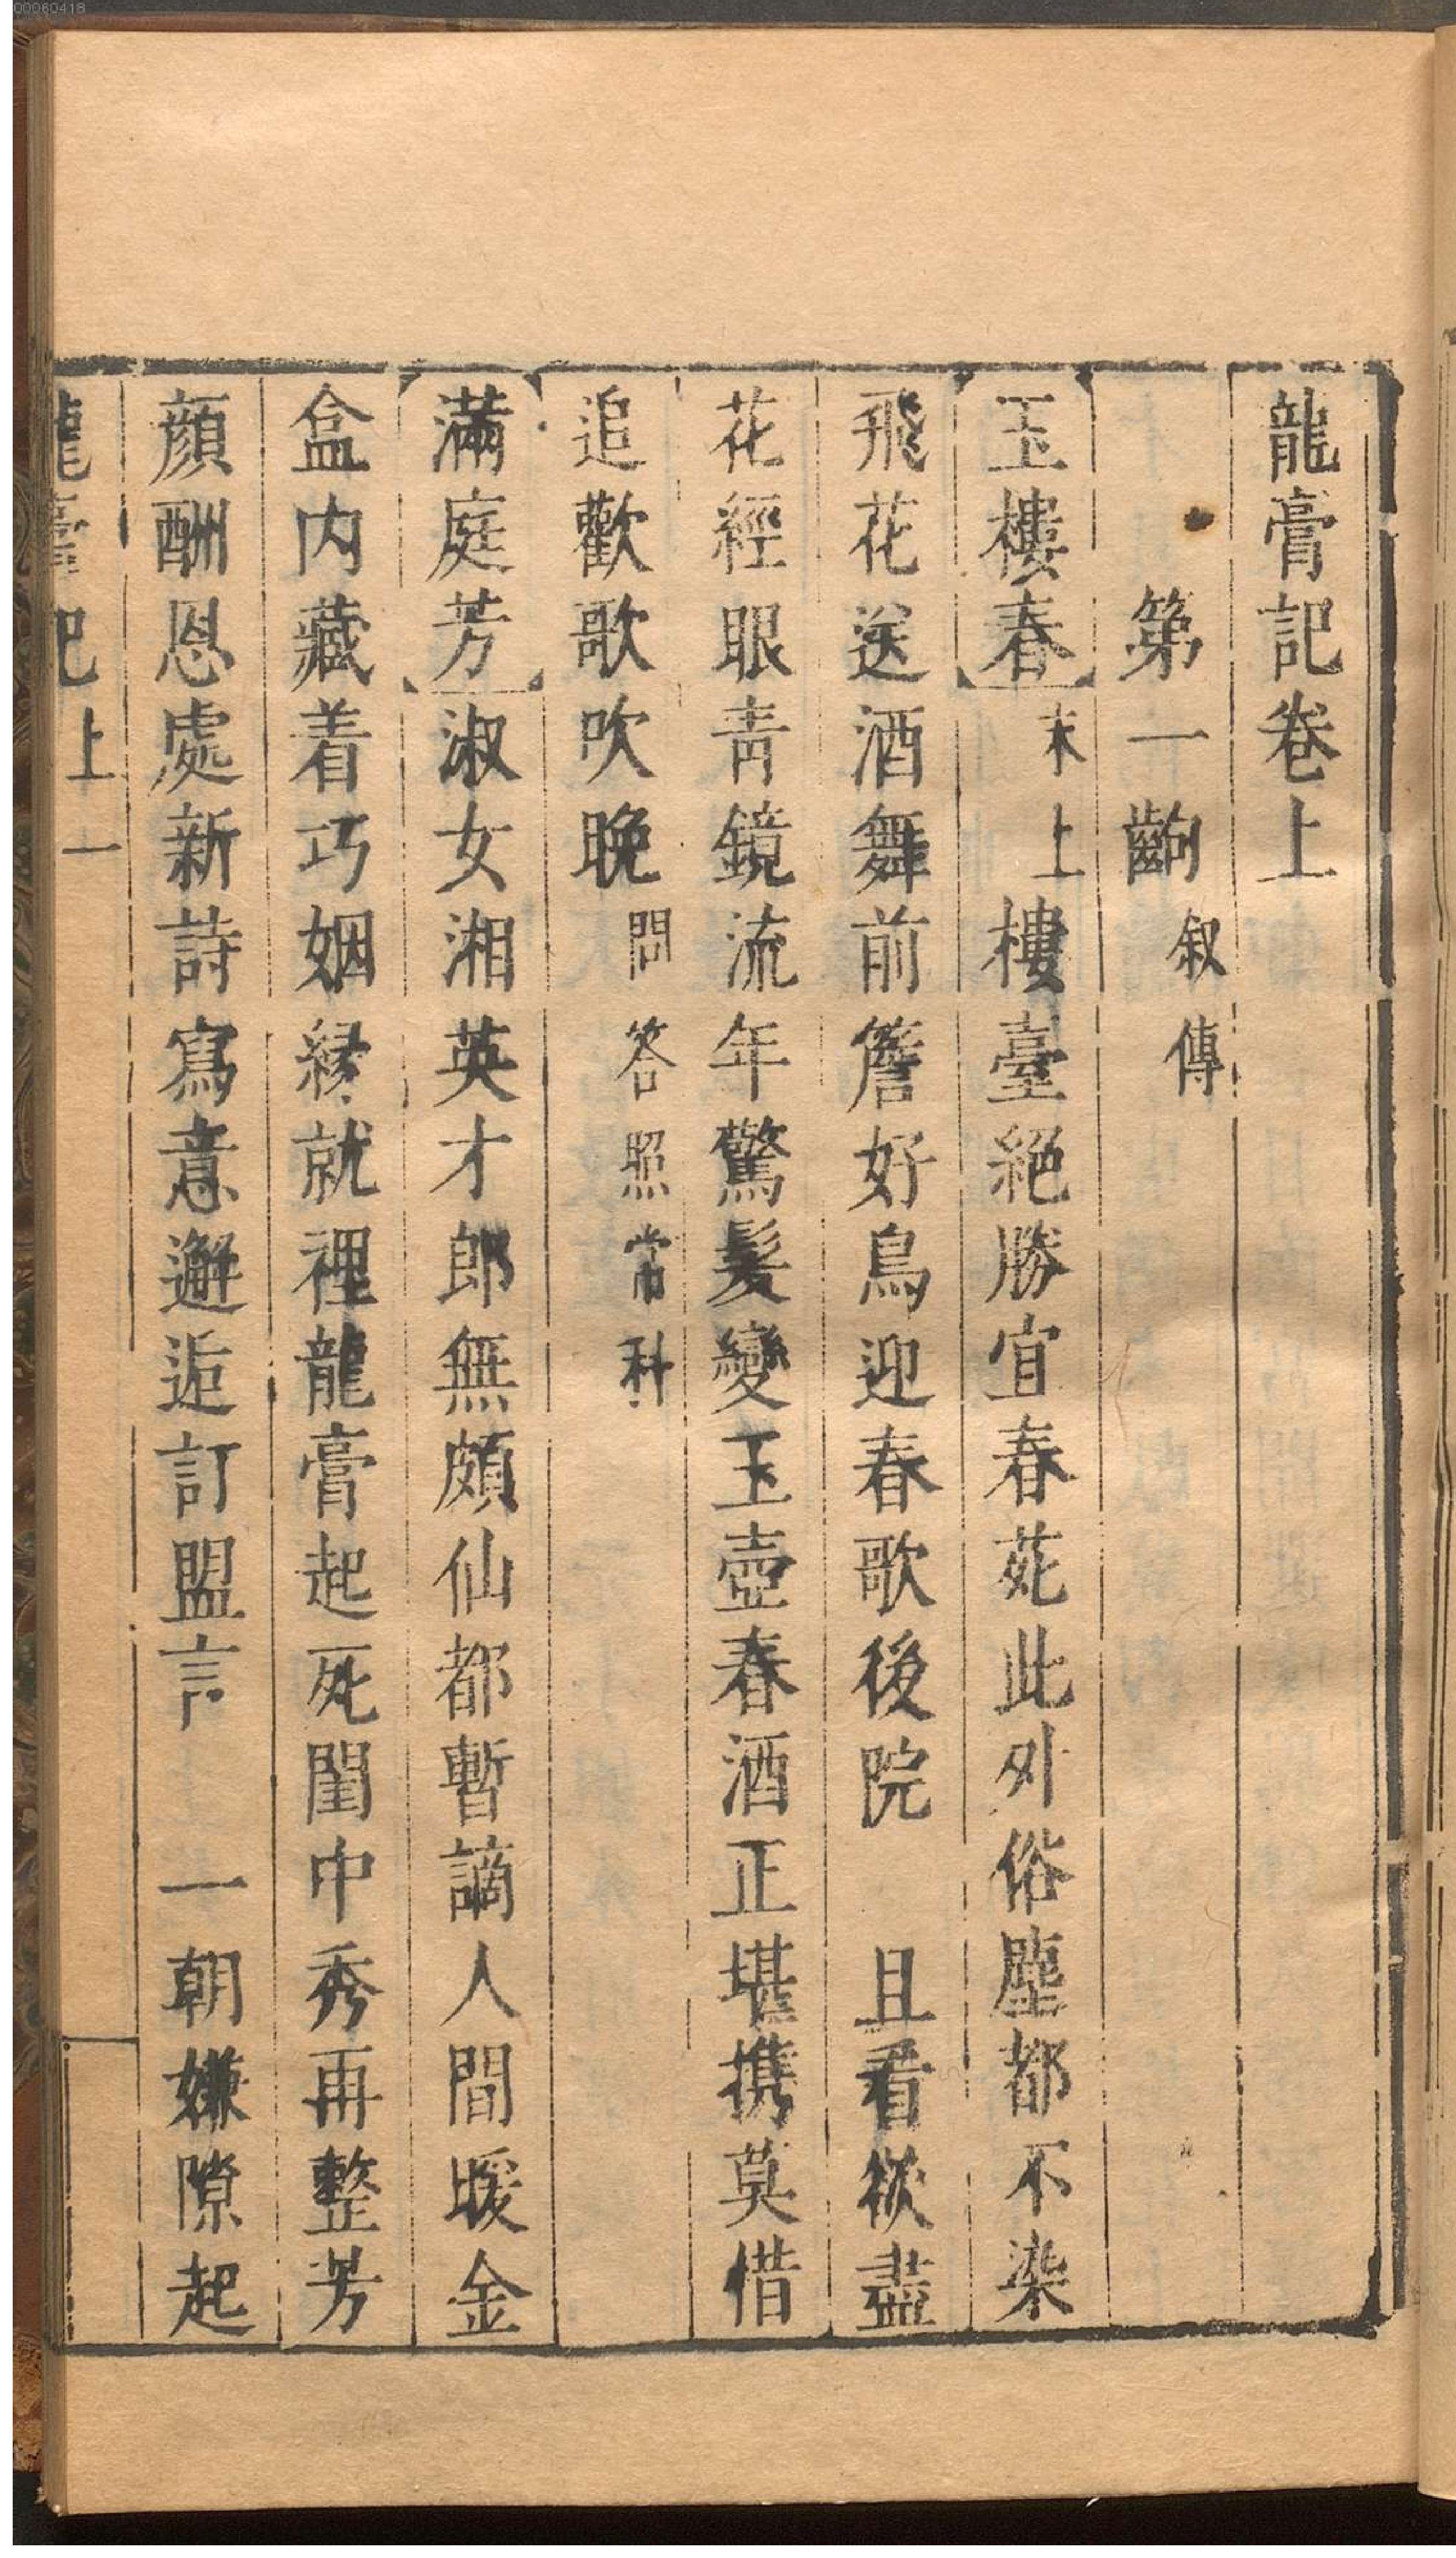 00060418
龍膏記卷上
第一齣 叙傳
玉樓春 末上 樓臺絕勝宜春苑此外俗塵都不染
飛花送酒舞前簷好鳥迎春歌後院 且看欲盡
花經眼青鏡流年驚髮變玉壺春酒正堪携莫惜
追歡歌吹晚 問答照常科
滿庭芳 淑女湘英才郎無頗仙都暫謫人間暖金
盒内藏着巧姻緣就裡龍膏起死閨中秀再整芳
顔酬恩處新詩寫意邂逅訂盟言 一朝嫌隙起
龍膏記 上 一